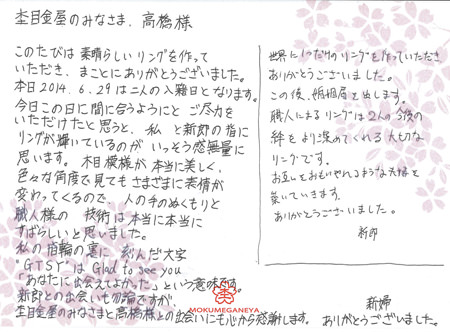 杢目金屋のみなさま、高橋様
このたびは 素晴らしい リングを作って
いただき、まことにありがとうございました。
本日2014.6.29は二人の入籍日となります。
今日この日に間に合うようにと ご尽力を
いただけたと思うと、私 と新郎の指に
リングが輝いているのが いっそう感無量に
思います。木目模様が本当に美しく、
色々な角度で見てもさまざまに表情が
変わってくるので、人の手のぬくもりと
職人様の 技術は本当に本当に
すばらしいと思いました。
私の指輪の裏に 刻んだ文字
"GTSY"は Glad to see you
「あなたに出会えてよかった」という意味です。
新郎との出会いも勿論ですが、
杢目金屋のみなさまと高橋様との出会いにも心から感謝します。
新婦
ありがとうございました。
世界に1つだけのリングを作っていただき
ありがとうございました。
この後、婚姻届を出します。
職人によるリングは2人の今後の
絆をより深めてくれる 大切な
リングです。
お互いをおもいやれるような夫婦を
築いていきます。
ありがとうございました。
新郎
MOKUMEGANEYA